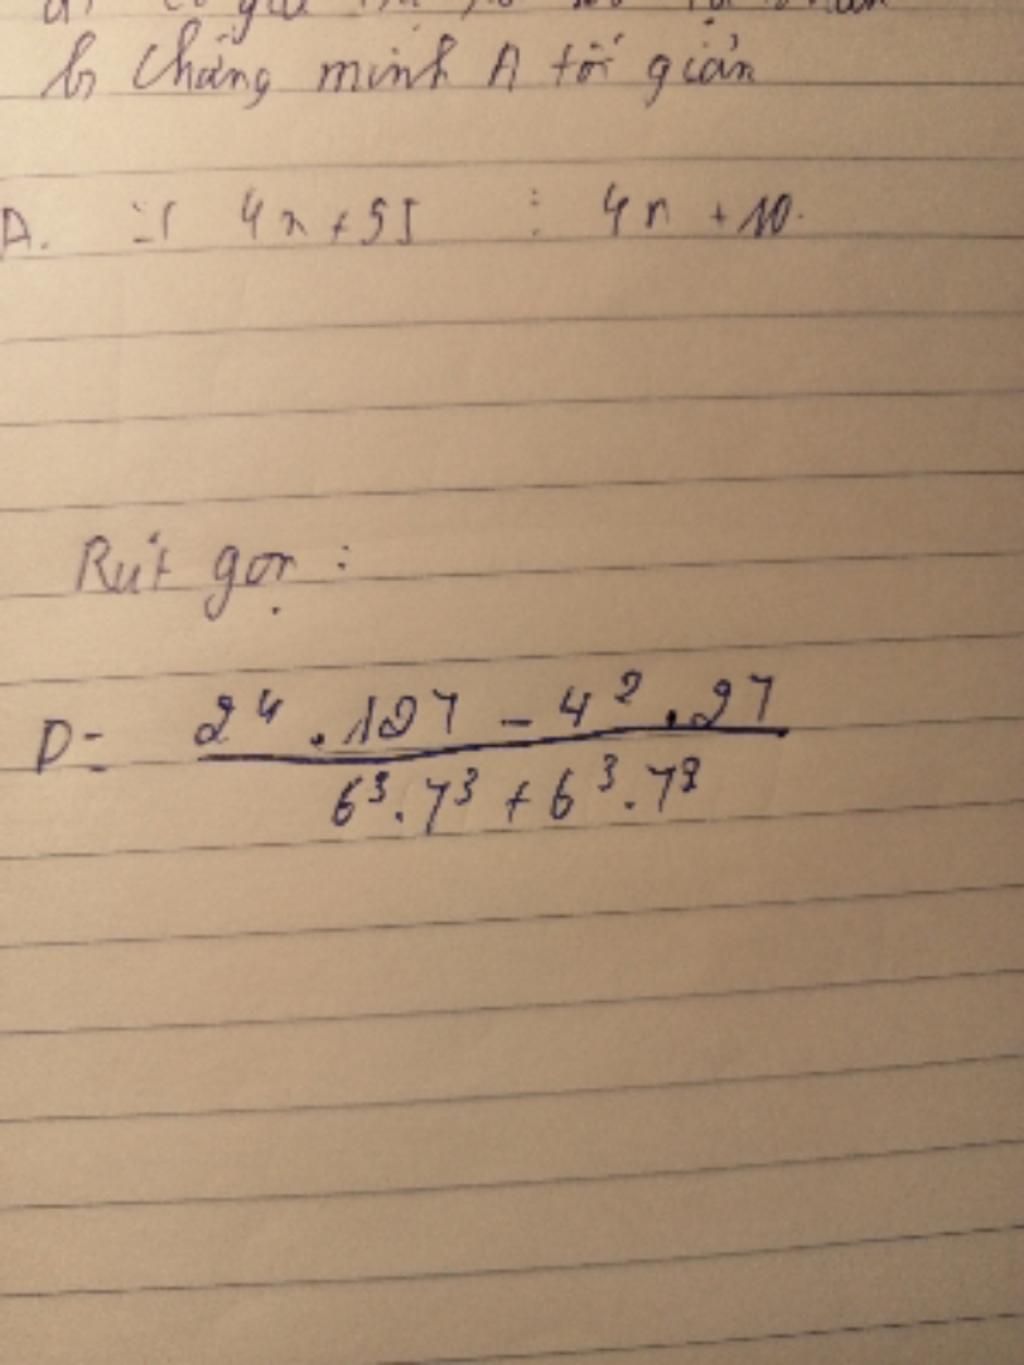 b, Chứng minh A tối giản
A. 4n + 55 ⋮ 4n + 10.
Rút gọn :
D = \frac{2^4 . 127 - 4^2 . 27}{6^3 . 7^3 + 6^3 . 7^2}